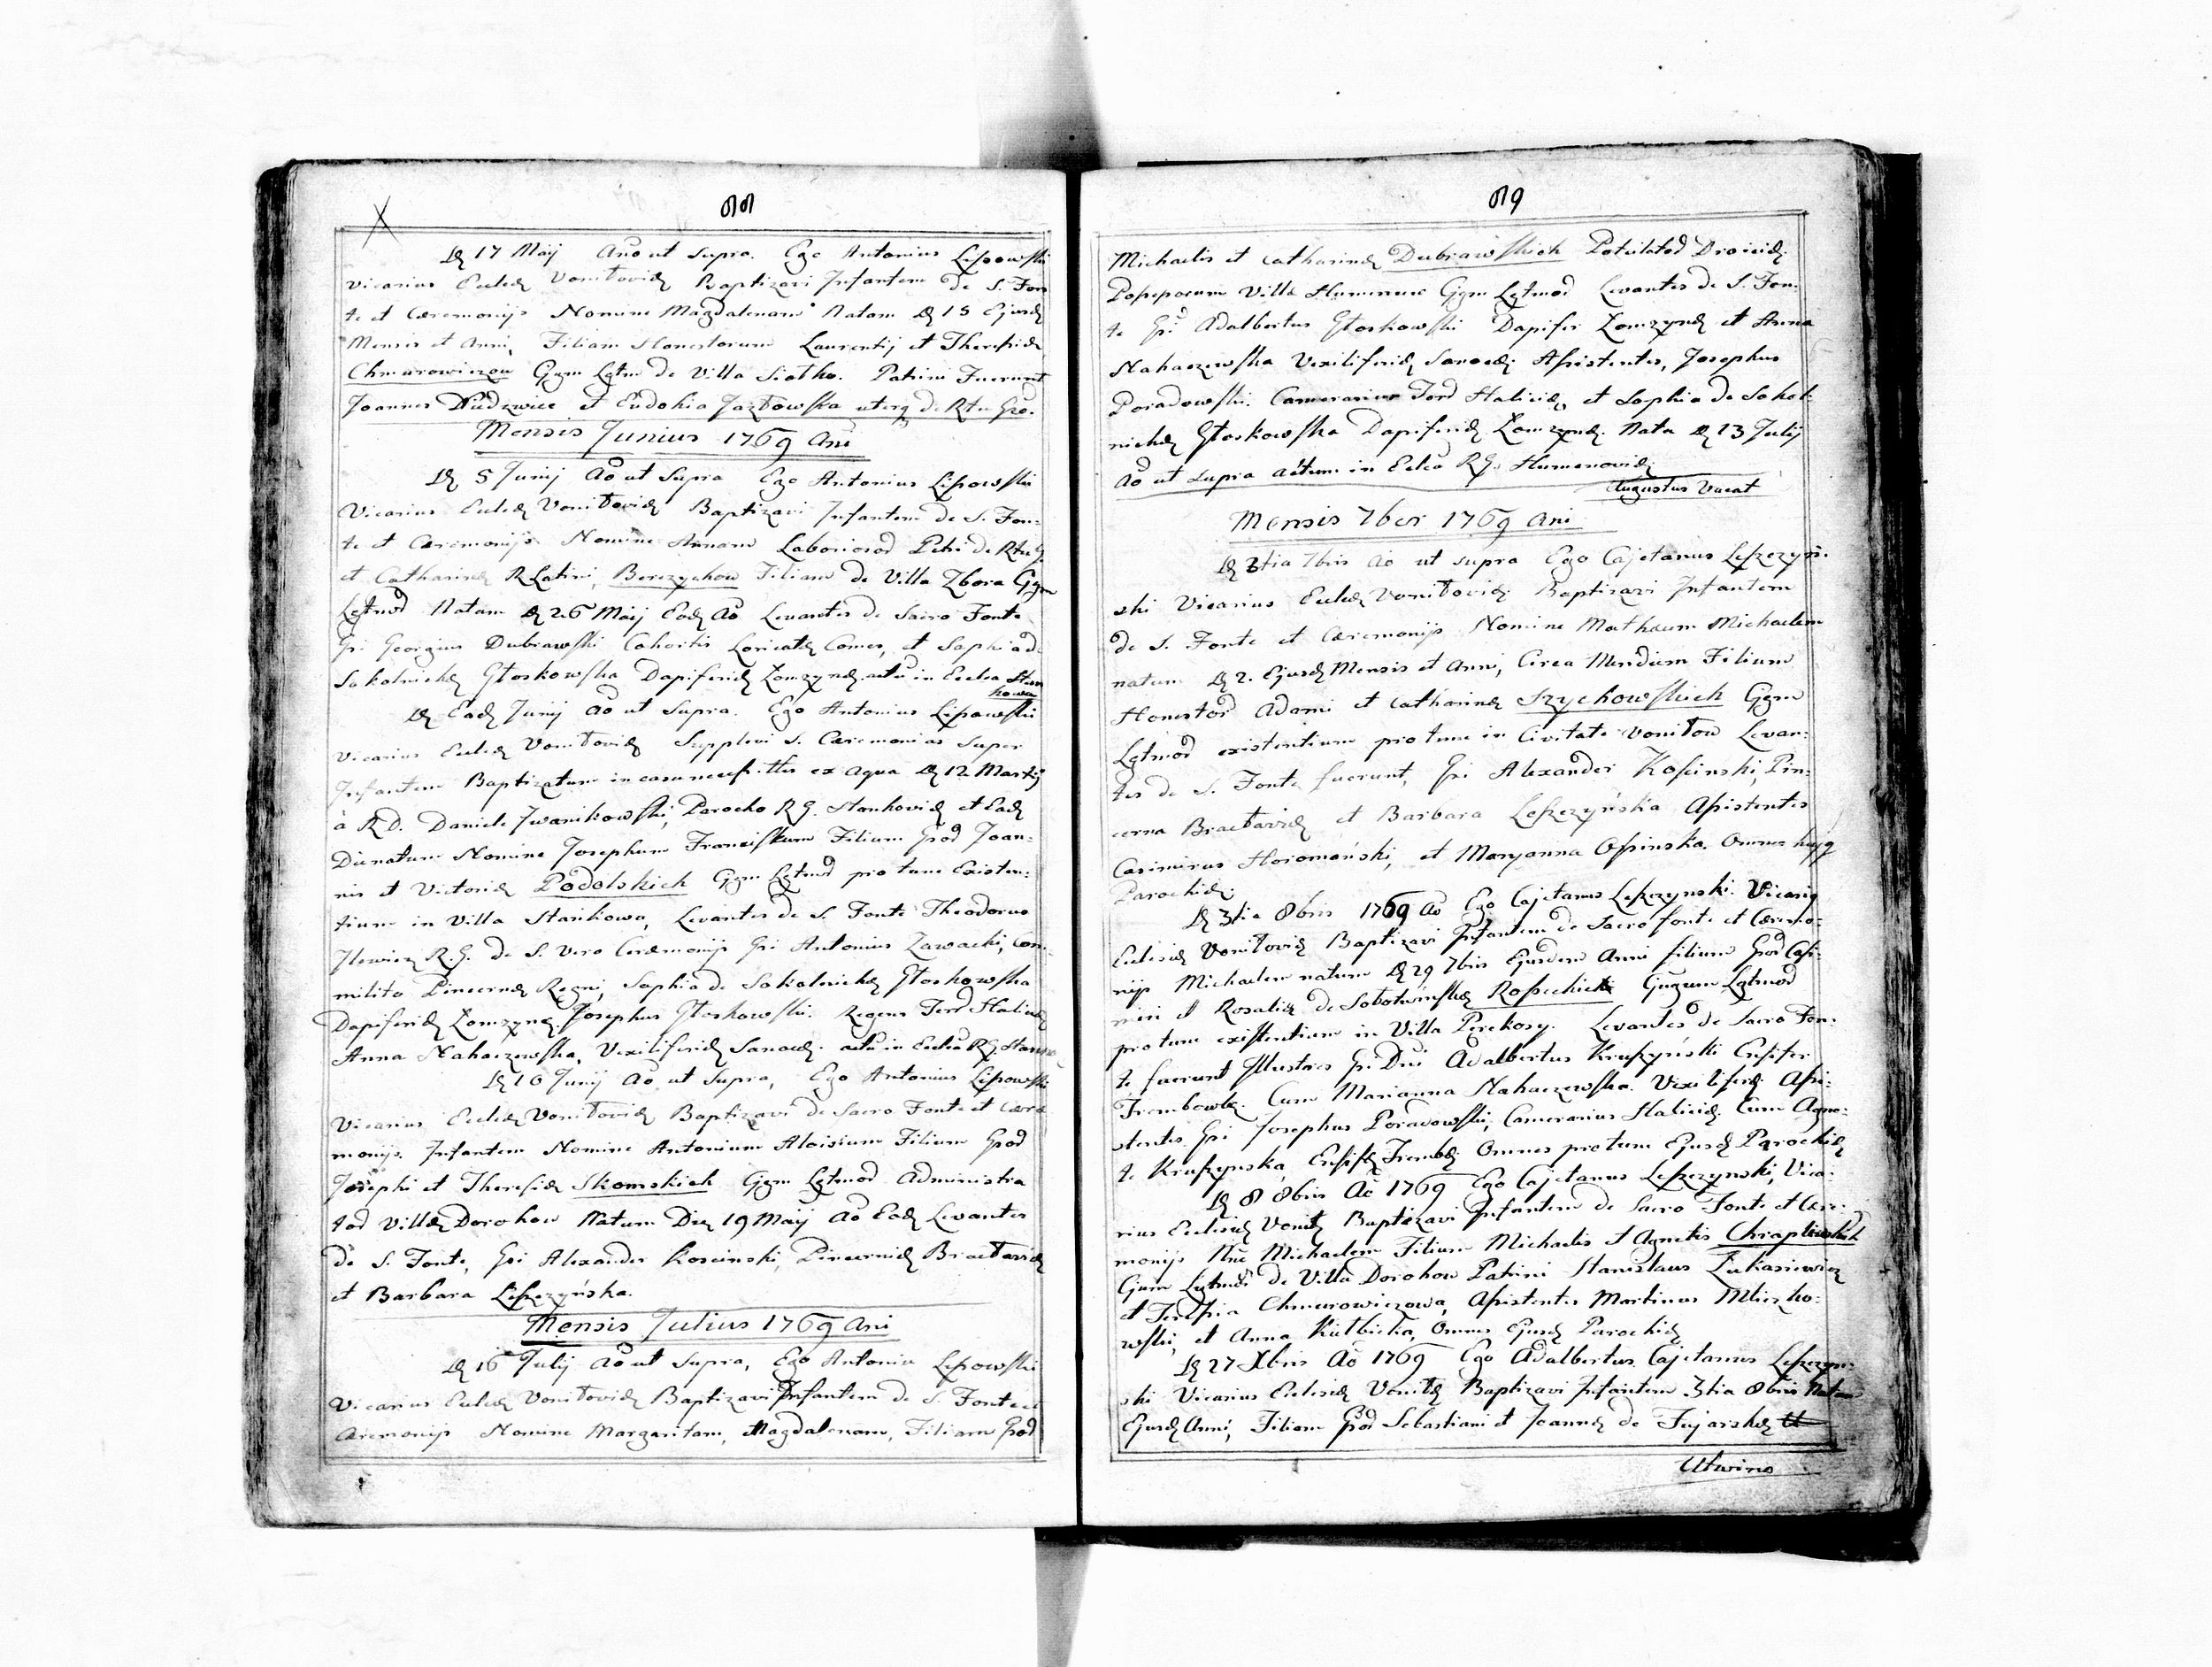 88
D 17 Maij Año ut Supra. Ego Antonius Lipowski
Vicarius Eccleæ Voniłoviæ Baptizavi Infantem de S. Fon
te et Cæremonijs Nomine Magdalenam Natam D 15 Ejusd
Mensis et Anni, Filiam Honestorum Laurentij et Theresiæ
Chmurowiczow Ggm Lgtm de Villa Siołko. Patrini Fuerunt
Joannes et Eudokia Jazłowska uterq de Rtu Gro.
Mensis Junius 1769 Ani
D 5 Junij Ao ut Supra Ego Antonius Lipowski
Vicarius Eccleæ Voniłoviæ Baptizavi Infantem de S. Fon:
te et Cæremonijs Nomine Annam Laboriosoŗ Petri de Rtu G.
et Catharinæ R Latini, Berezychow Filiam de Villa Zbora Ggm
Lgtmoŗ Natam D 26 Maij Eod Ao Levantes de Sacro Fonte
Gsi Georgius Dubrawski Cohortis Loricatæ Comes, et Sophia d
Sokolnickæ Głoskowska Dapiferid Zomzynd. actu in Ecclea Stan
kowa
D Ead Junij Ao ut Supra. Ego Antonius Lipowski
Vicarius Eccleæ Voniłoviæ Supplevi S. Cæremonias super
Infantem Baptizatum in casu necessittis ex Aqua D 12 Martij
à R D. Daniele Iwanikowski, Parocho R G. Stankoviæ et Ead
Die natum Nomine Josephum Franciskum Filium Gsoŗ Joan:
nis et Victoriæ Podolskich Ggm Lgtmoŗ pro tunc Existen:
tium in Villa Stańkowa, Levantes de S. Fonte Theodorus
Ilewicz R. G. de S. Vero Ceræmonijs Gsi Antonius Zawacki, Com:
milito Pincernæ Regni, Sophia de Sokolnickæ Głoskowska
Dapiferid Zomzynd. Josephus Głoskowski. Regens Terr Halicie
Anna Nahaczewska, Vexiliferid Sanocd. actu in Ecclea RG Stanko
D 16 Junij Ao ut Supra, Ego Antonius Lipowski
Vicarius Eccleæ Voniłoviæ Baptizavi de Sacro Fonte et Cære
monijs. Infantem Nomine Antonium Aloisium Filium Gsoŗ
Josephi et Theresiæ Skomskich Ggm Lgtmoŗ Administra
toŗ Villæ Dorohow Natum Die 19 Maij Ao Eod Levantes
de S. Fonte, Gsi Alexander Koscinski, Pincernid Bracłavid
et Barbara Leszczyńska.
Mensis Julius 1769 Ani
D 16 Julij Ao ut Supra, Ego Antonius Lipowski
Vicarius Eccleæ Voniłoviæ Baptizavi Infantem de S. Fonte et
Ceremonijs Nomine Margaritam, Magdalenam, Filiam Gsoŗ
89
Michaelis et Catharinæ Dubrawskich
Villa Humenow Ggm Lgtmoŗ Levantes de S. Fon:
te Gsi Adalbertus Głoskowski Dapifer Zomzynd et Anna
Nahaczewska Vexiliferid Sanocd. Assistentes, Josephus
Poradowski. Camerarius Terŗ Haliciæ, et Sophia de Sokol:
nickæ Głoskowska Dapiferid Zomzynd. Nata D 13 Julij
Ao ut supra actum in Eclea RG. Humenoviæ
Augustus Vacat
Mensis 7ber 1769 Ani
D 3tia 7bris Ao ut supra Ego Cajetanus Leszczyń:
ski Vicarius Eccleæ Voniłoviæ Baptizavi Infantem
de S. Fonte et Cæremonijs Nomine Mathæum Michaelem
natum D 2. Ejusd Mensis et Anni, Circa Meridiem Filium
Honestoŗ Adami et Catharinæ Szychowskich Ggm
Lgtmoŗ existentium pro tunc in Civitate Voniłow Levan:
tes de S. Fonte fuerunt, Gsi Alexander Kosinski, Pin:
cerna Bracłavid et Barbara Leszczyńska Assistentes
Casimirus Horomański, et Maryanna Osinska. Omnes hujq
Parochiæ.
D 3tia 8bris 1769 Ao Ego Cajetanus Leszczynski. Vicariq
Eclesiæ Voniłoviæ Baptizavi Infantem de Sacro fonte et Cæremo:
nijs Michaelem natum D 29 7bris Ejusdem Anni filium Gsoŗ Casi:
miri et Rosaliæ de Sobotwinskæ Gngum Lgtmoŗ
pro tunc existentium in Villa Perekosy. Levantes de Sacro Fon:
te fuerunt Illustres Gsi Dni Adalbertus Kruszyński Ensifer
Trembowlæ. Cum Marianna Nahaczewska. Vexiliferd. Assi:
stentes Gsi Josephus Poradowski, Camerarius Haliciæ. Cum Agne:
te Kruszynska, Ensifd Trembd Omnes pro tunc Ejusd Parochiæ
D 8 8bris Ao 1769 Ego Cajetanus Leszczynski, Vica:
rius Eclesiæ Vonił Baptizavi Infantem de Sacro Fonte et Cære:
monijs Nne Michaelem Filium Michaelis et Agnetis Chraplewskich
Ggum Lgtmoŗ de Villa Dorohow Patrini Stanislaus Łukasiewicz
et Teresia Chmurowiczowa, Assistentes Martinus Mierzko:
wski, et Anna Kiełbicka, Omnes Ejusd Parochiæ
D 27 Xbris Ao 1769 Ego Adalbertus Cajetanus Leszczyn:
ski Vicarius Eclesiæ Voniłæ Baptizavi Infantem 3tia 8bris Natam
Ejusd Anni, Filiam Gsoŗ Sebastiani et Joannæ de Fujarskæ
Utwino